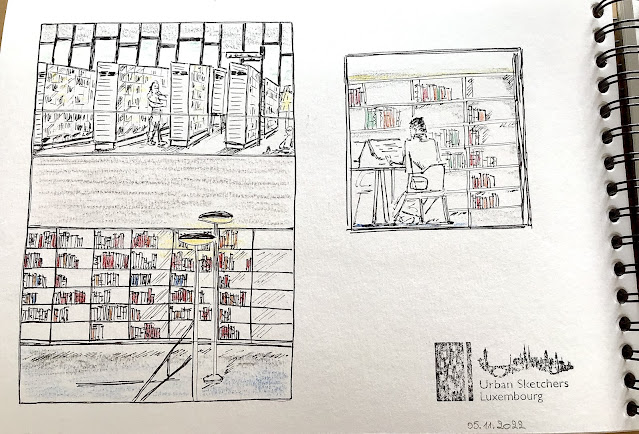 Urban Sketchers
Luxembourg
05.11.2022